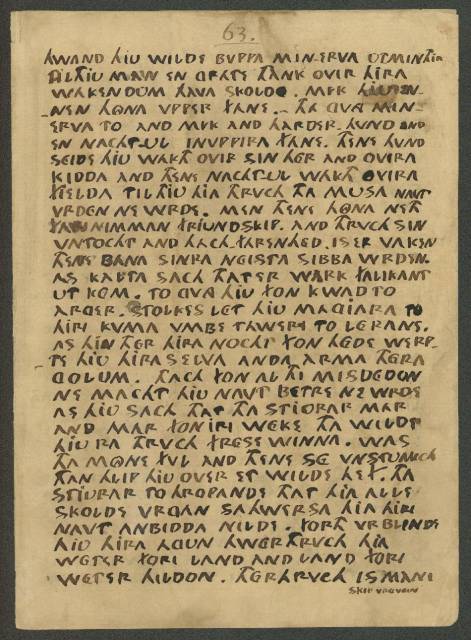 63.
HWAND HJU WILDE BUPPA MINERVA UTMINTHA
TIL THJU MAN EN GRATE THANK OVIR HIRA
WAKENDOM HAVA SKOLDE. MEK HJU EN
NEN HONA UPPER FANE. THA GVNG MIN-
ERVA TO AND MEK AND HARDER-HUND AND
EN NACHTUL IN VPPIRA FANE. THENE HUND
SEIDE HJU WAKTH OVIR SIN HER AND OVIRA
KIDDA AND THENE NACHTUL WAKTH OVIRA
FJELDA TIL THJU HJA THRUCH THA MUSA NAVT
VRDEN NE WRDE. MEN THENE HONA NETH
FAR NIMMAN FRJUNDSKIP. AND THRUCH SIN
VNTOCHT AND HACHFARENHED. IS ER VAKEN
THENE BANA SINRA NEISTA SIBBA WRDEN.
AS KALTA SACH THAT ER WARK FALIKANT
UT KEM. TO GVNG HJU FON KWAD TO
ARGER. STOLKES LET HJU MAGJARA TO
HIRI KVMA VMBE TAWERI TO LERANE.
AS HJU THER HIRA NOCHT FON HEDE WERP-
TE HJU HIRA SELVA ANDA ARMA THERA
GOLUM. THACH FON AL THI MISDEDON
NE MACHT HJU NAVT BETRE NE WRDE
AS HJU SACH THAT THA STJURAR MAR
AND MAR FON IRI WEKE THA WILDE
HJU RA THRUCH FRESE WINNA. WAS
THA MONE FUL AND THENE SE VNSTUMICH
THAN HLIP HJU OVER ET WILDE HEF. THA
STJURAR TO HROPANDE THAT HJA ALLE
SKOLDE VRGAN SAHWERSA HJA HIRI
NAVT ANBIDDA NILDE. FORTH VRBLINDE
HJU HIRA AGUN HWERTHRUCH HJA
WETER FORI LAND AND LAND FORI
WETER HILDON. THERTHRUCH IS MANI
SKIP VRGVNGEN